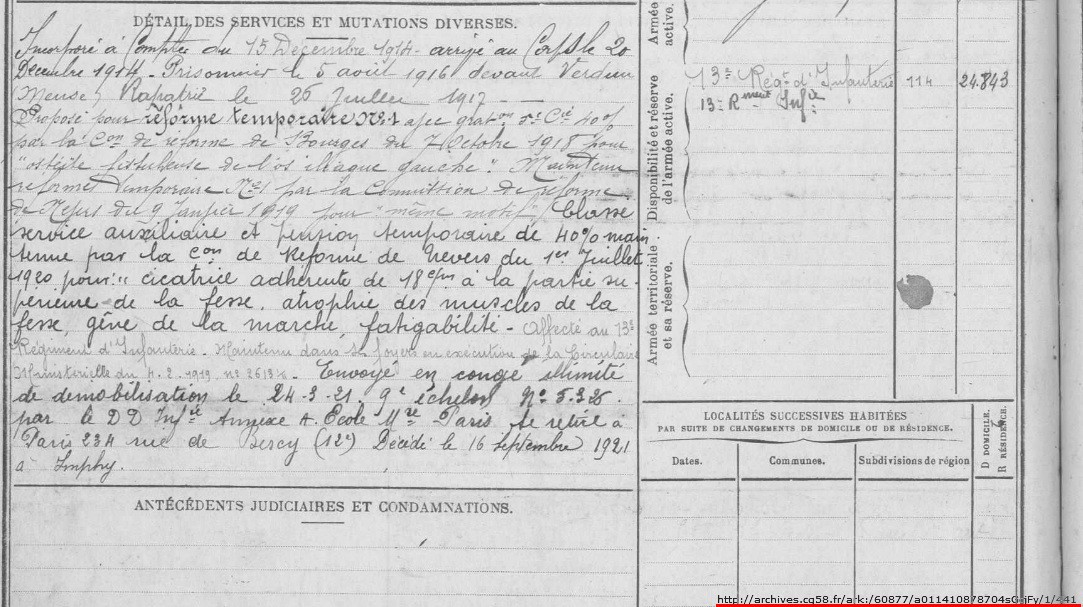 DÉTAIL DES SERVICES ET MUTATIONS DIVERSES.
Incorporé à Compter du 15 Décembre 1914 - arrivé au Corps le 20
Décembre 1914 - Prisonnier le 5 août 1916 devant Verdun
(Meuse) Rapatrié le 26 Juillet 1917 -
Proposé pour réforme temporaire N°1 avec grat^on 5e Cie 40%
par la C^on de réforme de Bourges du 7 Octobre 1918 pour
"ostéite fistuleuse de l'os illiaque gauche". Maintenu
réformé temporaire N°1 par la Commission de réforme
de Nevers du 9 Janvier 1919 pour "même motif" Classé
service auxiliaire et pension temporaire de 40% main
tenue par la C^on de Réforme de Nevers du 1er Juillet
1920 pour: "cicatrice adhérente de 18 c/m à la partie su-
périeure de la fesse, atrophie des muscles de la
fesse, gêne de la marche, fatigabilité - Affecté au 13e
Régiment d'Infanterie - Maintenu dans ses foyers en exécution de la Circulaire
Ministérielle du 4.2.1919 n° Envoyé en congé illimité
de démobilisation le 24-3-21. 9e échelon N°
par le D D Inf^ie Annexe Ecole M^re Paris se retire à
Paris 234 rue de Bercy (12e) Décédé le 16 septembre 1921
à Imphy.
ANTÉCÉDENTS JUDICIAIRES ET CONDAMNATIONS.
Armée
active.
Disponibilité et réserve
de l'armée active.
13e Rég^t d'Infanterie 114 24.843
13e R^ment Inf^ie
Armée territoriale
et sa réserve.
LOCALITÉS SUCCESSIVES HABITÉES
PAR SUITE DE CHANGEMENTS DE DOMICILE OU DE RÉSIDENCE.
Dates. Communes. Subdivisions de région
D DOMICILE.
R RÉSIDENCE.
http://archives.cg58.fr/ark:/60877/a011410878704sGrjFy/1/441